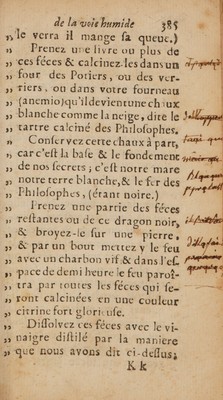 de la voie humide 385
„ le verra il mange sa queue.)
„ Prenez une livre ou plus de
„ ces féces & calcinez-les dans un
„ four des Potiers, ou des ver-
„ riers, ou dans votre fourneau
„ (anemio) qu'il devient une chaux
„ blanche comme la neige, dite le
„ tartre calciné des Philosophes.
„ Conservez cette chaux à part,
„ car c'est la base & le fondement
„ de nos secrets; c'est notre mare
„ notre terre blanche, & le fer des
„ Philosophes, (étant noire.)
„ Prenez une partie des féces
„ restantes ou de ce dragon noir,
„ & broyez-le sur une pierre,
„ & par un bout mettez y le feu
„ avec un charbon vif & dans l'es-
„ pace de demi heure le feu paroî-
„ tra par toutes les féces qui se-
„ ront calcinées en une couleur
„ citrine fort glorieuse.
„ Dissolvez ces féces avec le vi-
„ naigre distilé par la maniere
„ que nous avons dit ci-dessus;
K k